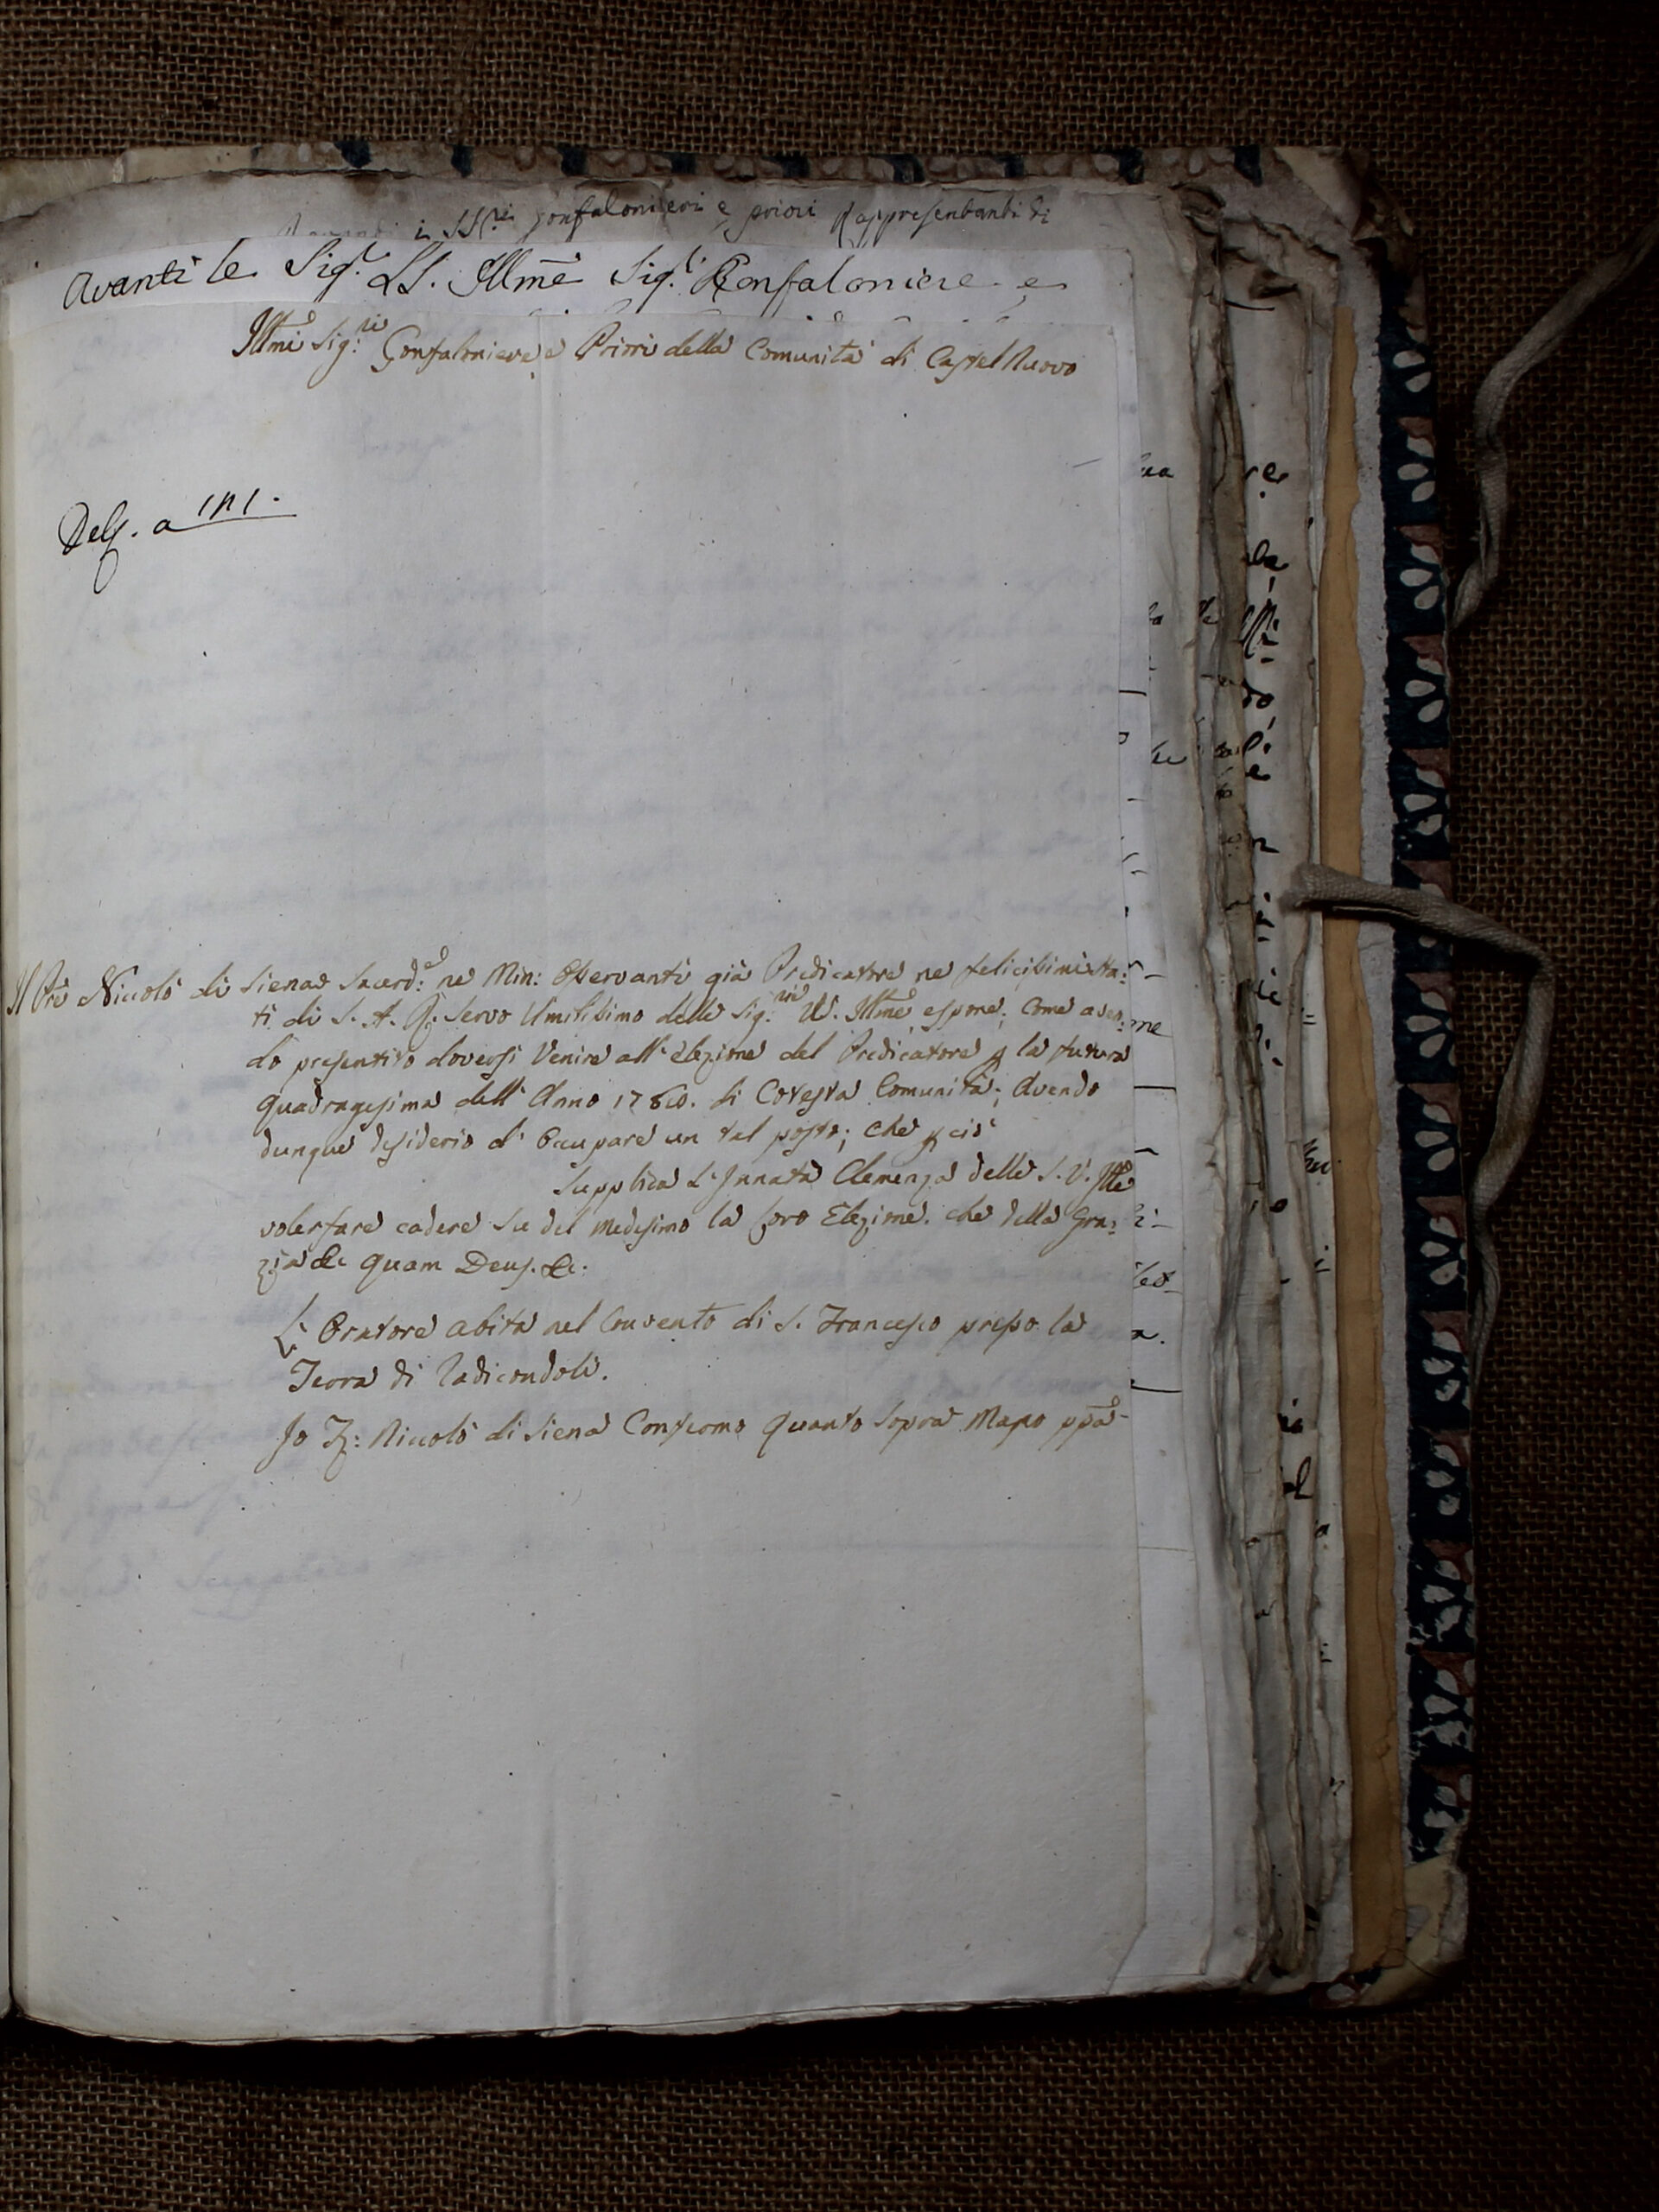 i SS.ri Gonfalonieri e priori Rappresentanti di
Avanti le Sig.e LL. Illme Sig.ri Gonfaloniere e
Illmi Sig:ri Gonfaloniere, e Priori della Comunità di Castel Nuovo
Del. a 171.
Il Pre Niccolò di Siena Sacerd:e ne Min: Osservanti già Predicatore ne felicissimi Sta:
ti di S. A. R: Servo Umilissimo delle Sig:rie VV. Illme, espone; come aven:
do presentito doversi Venire all' elezione del Predicatore p la futura
Quadragesima dell' Anno 1780. di Cotesta Comunità; Avendo
dunque desiderio d' Occupare un tal posto; che p ciò
Supplica L' Innata Clemenza delle S. V. Ill.e
voler fare cadere su del medesimo la loro Elezione. che della Gra:
zia &c Quam Deus. &c.
L' Oratore abita nel Convento di S. Francesco presso la
Terra di Radicondoli.
Io F: Niccolò di Siena Confermo Quanto Sopra Mano ppa